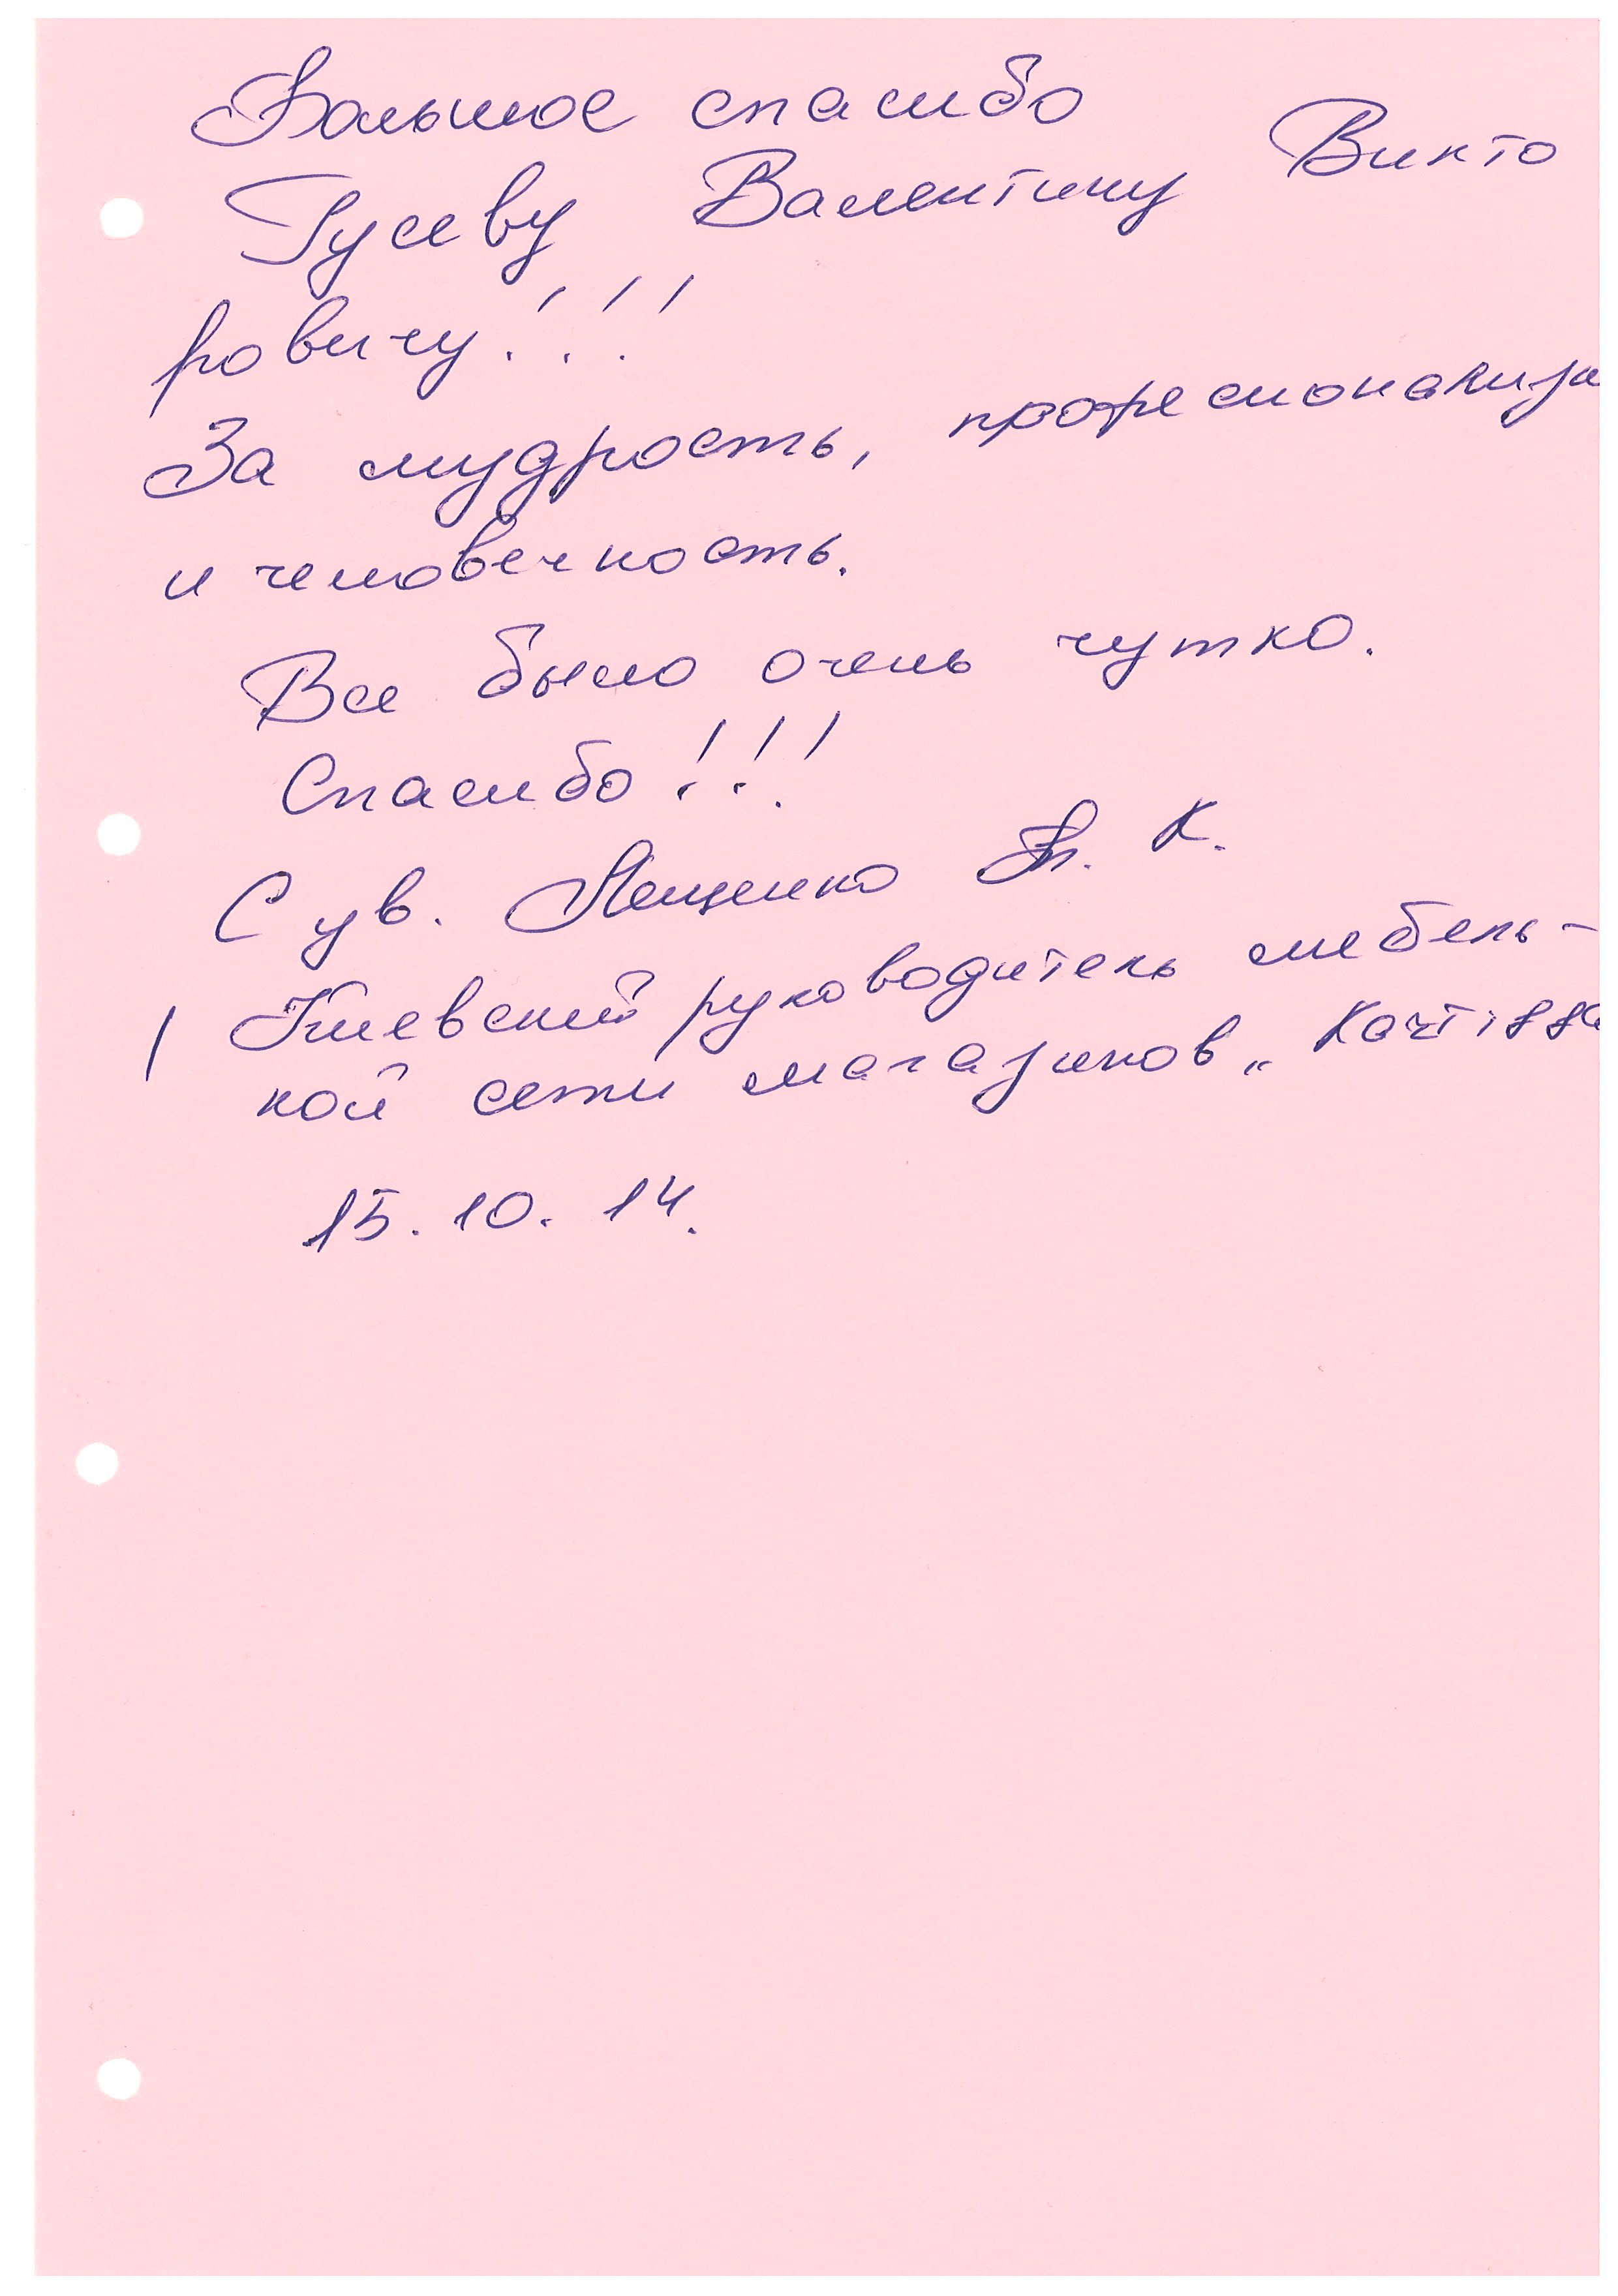 Большое спасибо
Гусеву Валентину Викто
ровичу!!!
За мудрость, професионализ
и человечность.
Все было очень чутко.
Спасибо!!!
С ув. К.
/ Киевский руководитель мебель-
ной сети магазинов „
15.10.14.